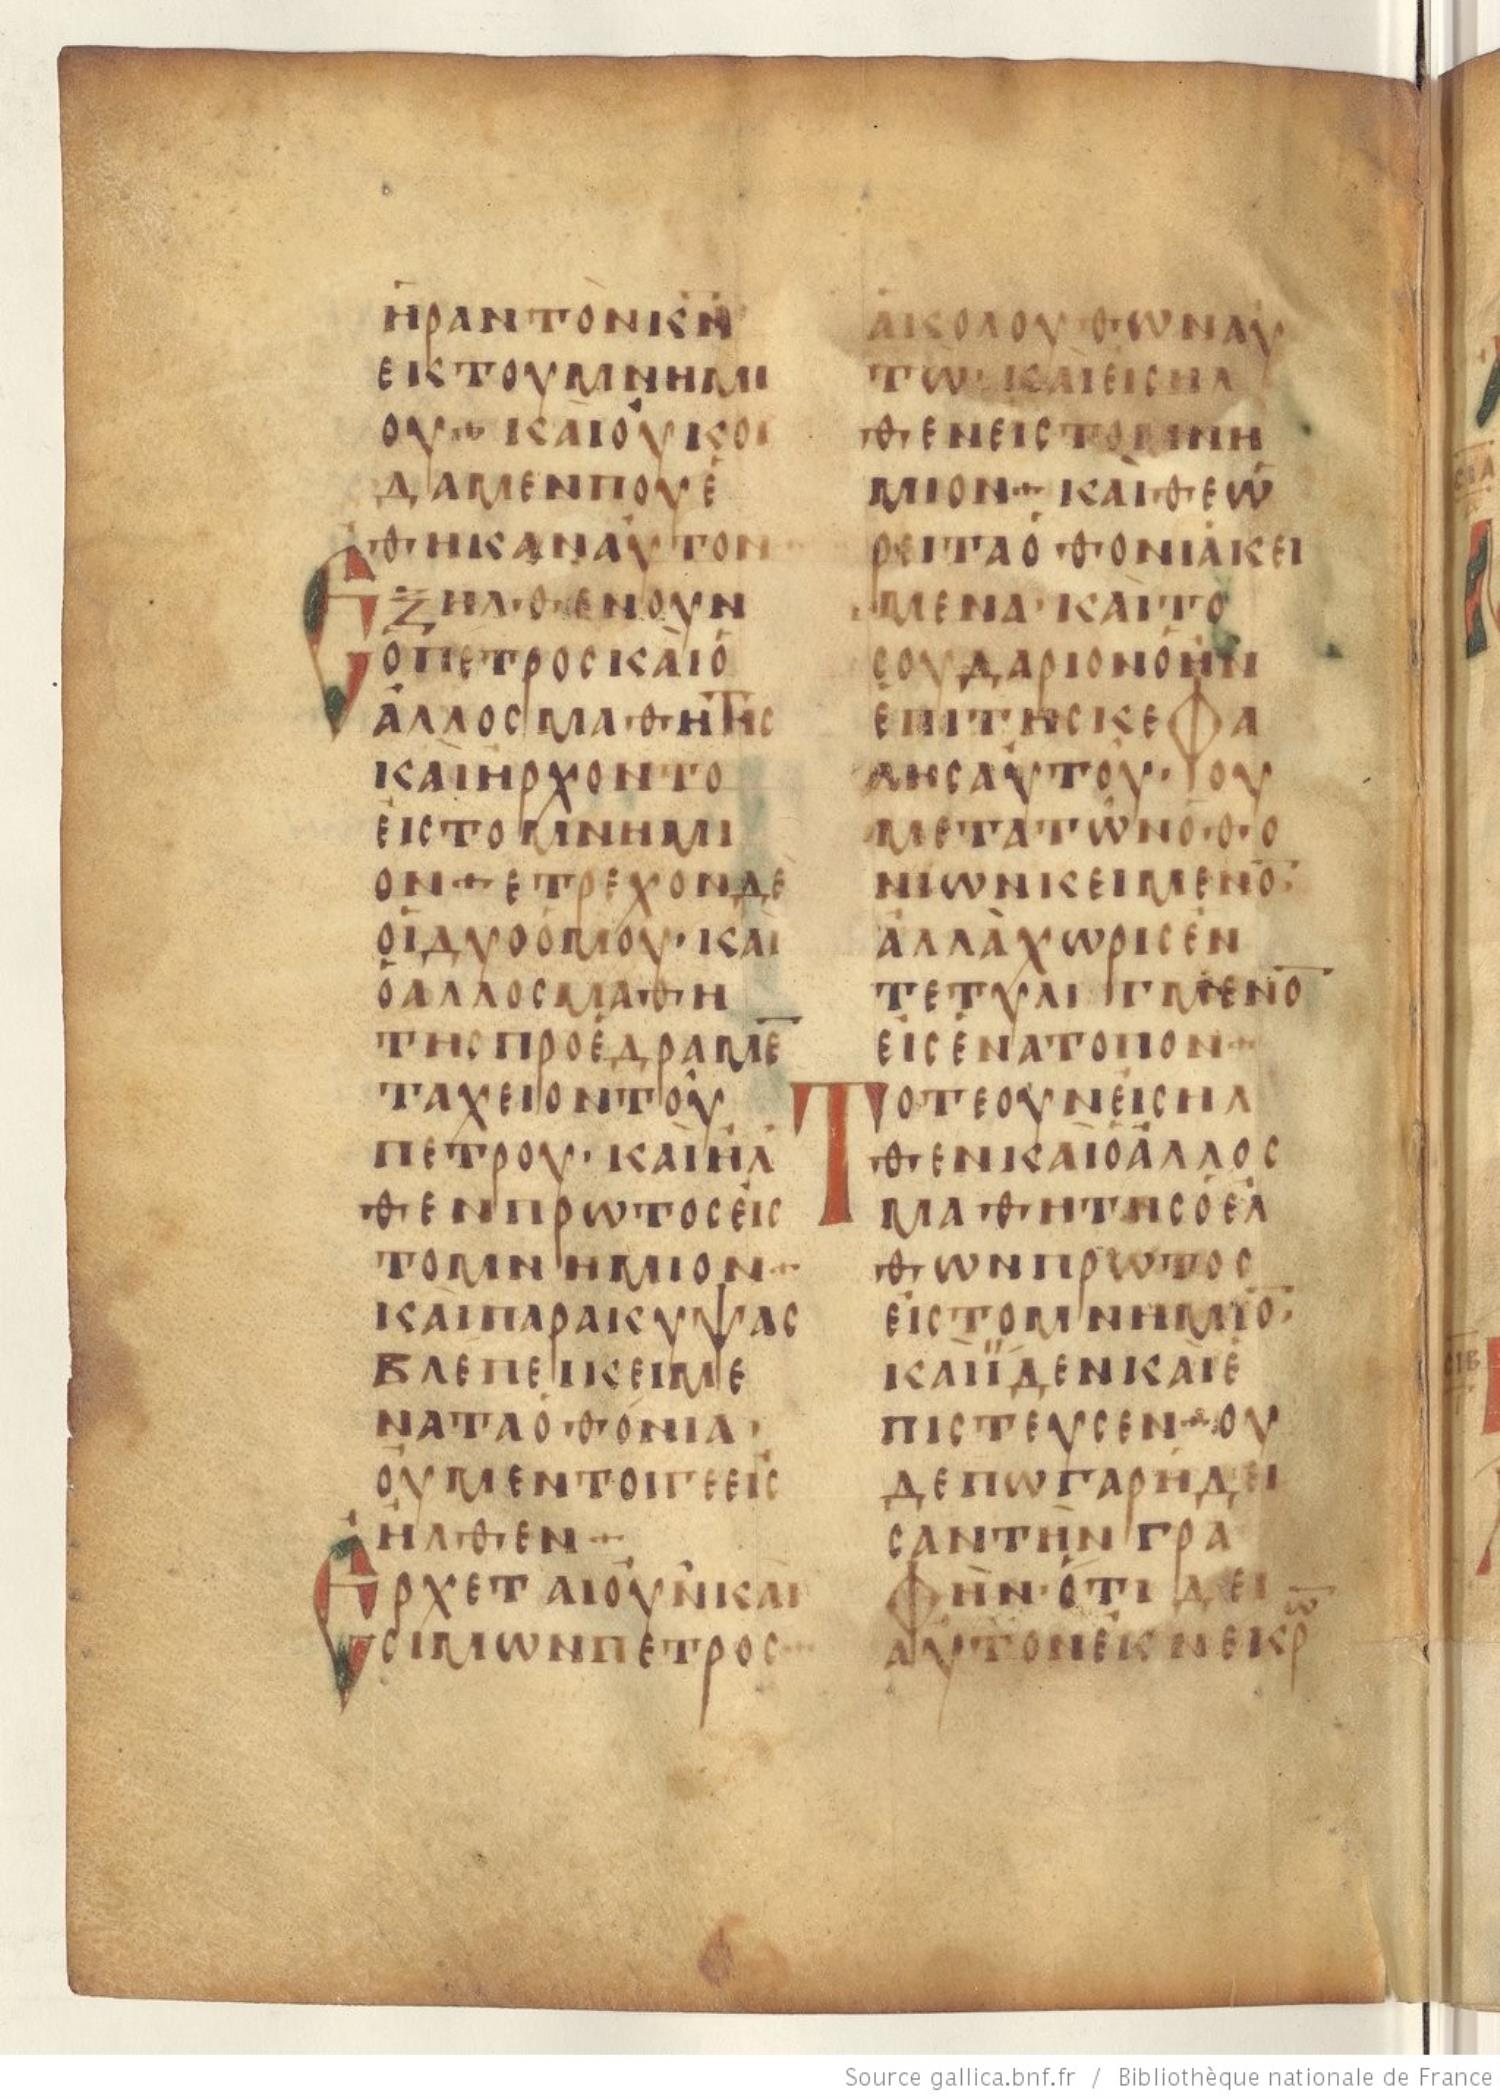 ἨΡΑΝΤΟΝΚΝ̄
ΕΚΤΟΥΜΝΗΜΙ
ΟΥ+ΚΑΙΟΥΚΟΙ
ΔΑΜΕΝΠΟΥΕ
ΘΗΚΑΝΑΥΤΟΝ
ΕΞΗΛΘΕΝΟΥΝ
ΟΠΕΤΡΟΣΚΑΙΟ
ΑΛΛΟΣΜΑΘΗΤΗΣ
ΚΑΙΗΡΧΟΝΤΟ
ΕΙΣΤΟΜΝΗΜΙ
ΟΝ+ΕΤΡΕΧΟΝΔΕ
ΟΙΔΥΟΟΜΟΥ·ΚΑΙ
ΟΑΛΛΟΣΜΑΘΗ
ΤΗΣΠΡΟΕΔΡΑΜΕ̄
ΤΑΧΕΙΟΝΤΟΥ
ΠΕΤΡΟΥ·ΚΑΙΗΛ
ΘΕΝΠΡΩΤΟΣΕΙΣ
ΤΟΜΝΗΜΙΟΝ+
ΚΑΙΠΑΡΑΚΥΨΑΣ
ΒΛΕΠΕΙΚΕΙΜΕ
ΝΑΤΑΟΘΟΝΙΑ·
ΟΥΜΕΝΤΟΙΓΕΕΙΣ
ΗΛΘΕΝ+
ΕΡΧΕΤΑΙΟΥΝΚΑΙ
ΣΙΜΩΝΠΕΤΡΟΣ
ΑΚΟΛΟΥΘΩΝΑΥ
ΤΩ·ΚΑΙΕΙΣΗΛ
ΘΕΝΕΙΣΤΟΜΝΗ
ΜΙΟΝ+ΚΑΙΘΕΩ
ΡΕΙΤΑΟΘΟΝΙΑΚΕΙ
ΜΕΝΑ·ΚΑΙΤΟ
ΣΟΥΔΑΡΙΟΝΟΗΝ
ΕΠΙΤΗΣΚΕΦΑ
ΛΗΣΑΥΤΟΥ·ΟΥ
ΜΕΤΑΤΩΝΟΘΟ
ΝΙΩΝΚΕΙΜΕΝΟ̄·
ΑΛΛΑΧΩΡΙΣΕΝ
ΤΕΤΥΛΙΓΜΕΝΟ̄
ΕΙΣΕΝΑΤΟΠΟΝ+
ΤΟΤΕΟΥΝΕΙΣΗΛ
ΘΕΝΚΑΙΟΑΛΛΟΣ
ΜΑΘΗΤΗΣΟΕΛ
ΘΩΝΠΡΩΤΟΣ
ΕΙΣΤΟΜΝΗΜΙΟ̄·
ΚΑΙΪΔΕΝΚΑΙΕ
ΠΙΣΤΕΥΣΕΝ+ΟΥ
ΔΕΠΩΓΑΡΗΔΕΙ
ΣΑΝΤΗΝΓΡΑ
ΦΗΝ·ΟΤΙΔΕΙ
ΑΥΤΟΝΕΚΝΕΚΡΩ̄
Source gallica.bnf.fr / Bibliothèque nationale de France